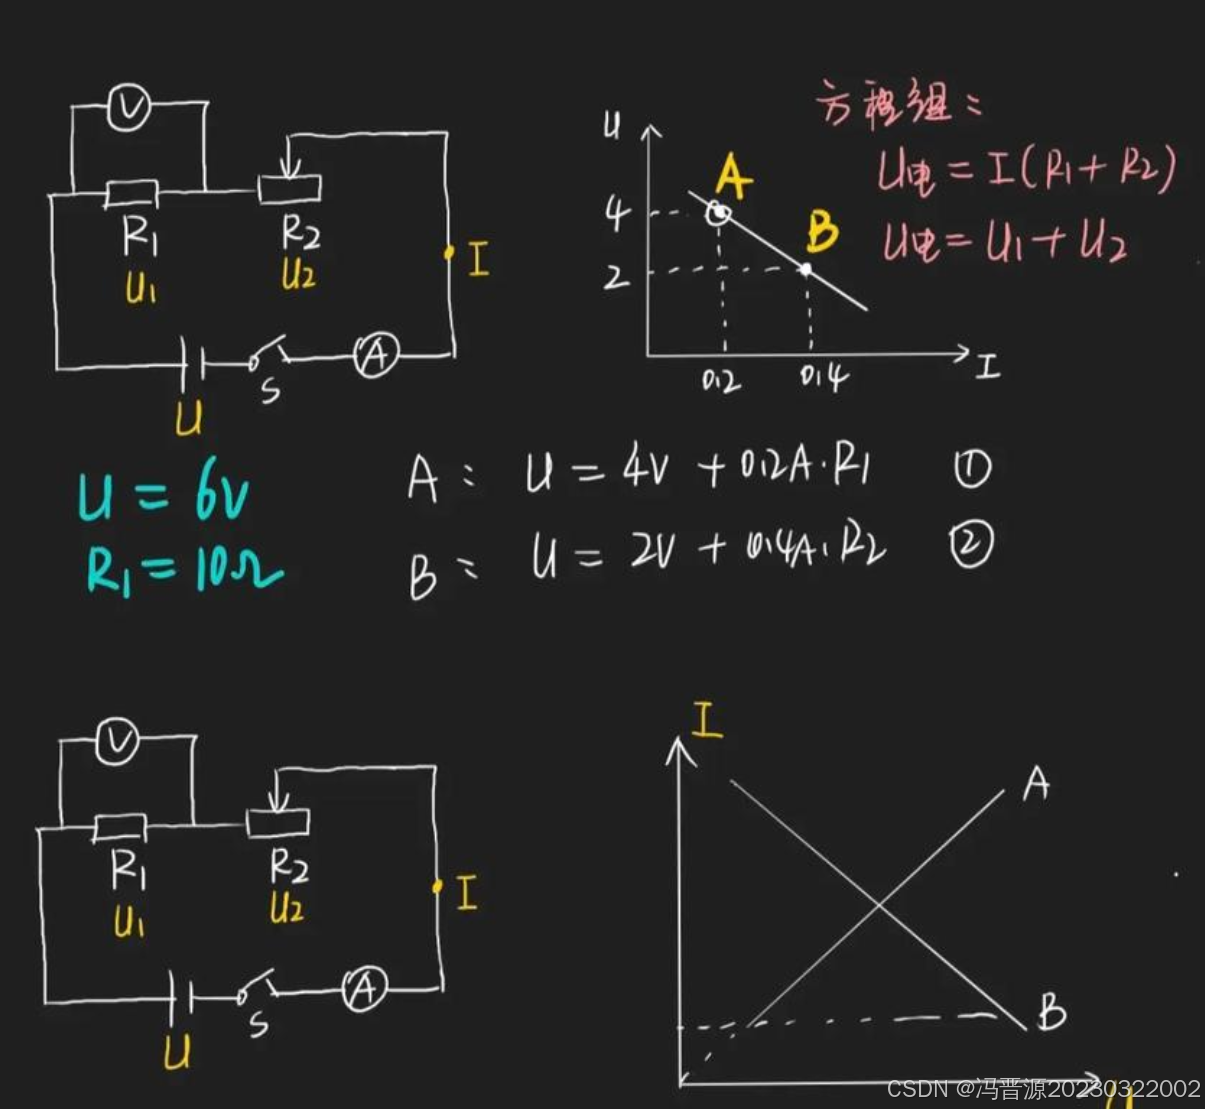 V
R1
U1
R2
U2
I
S
A
U
U
4
2
A
B
0.2
0.4
I
方程组:
U电 = I(R1 + R2)
U电 = U1 + U2
U = 6V
R1 = 10Ω
A: U = 4V + 0.2A·R1 ①
B: U = 2V + 0.4A·R2 ②
V
R1
U1
R2
U2
I
S
A
U
I
A
B
U
CSDN @冯晋源20230322002